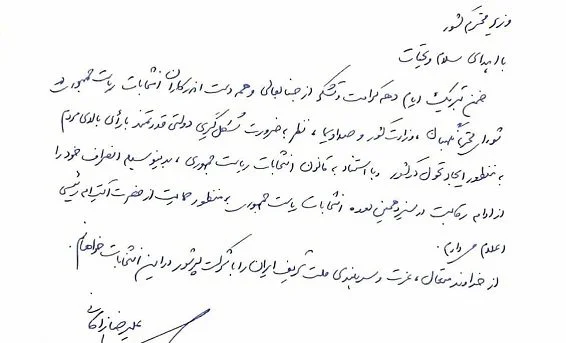 وزیر محترم کشور
با اهدای سلام و تحیات
ضمن تبریک ایام دهه کرامت و تشکر از جنابعالی و همه دست اندرکاران انتخابات ریاست جمهوری در
شورای محترم نگهبان، وزارت کشور و صداوسیما، نظر به ضرورت شکل‌گیری دولتی قدرتمند با رأی بالای مردم
به منظور ایجاد تحول در کشور و با استناد به قانون انتخابات ریاست جمهوری، بدینوسیله انصراف خود را
از ادامه رقابت در سیزدهمین دوره انتخابات ریاست جمهوری به منظور حمایت از حضرت آیت‌اله رئیسی
اعلام می‌دارم.
از خداوند متعال، عزت و سربلندی ملت شریف ایران را با شرکت پرشور در این انتخابات خواهانم.
علیرضا زاکانی